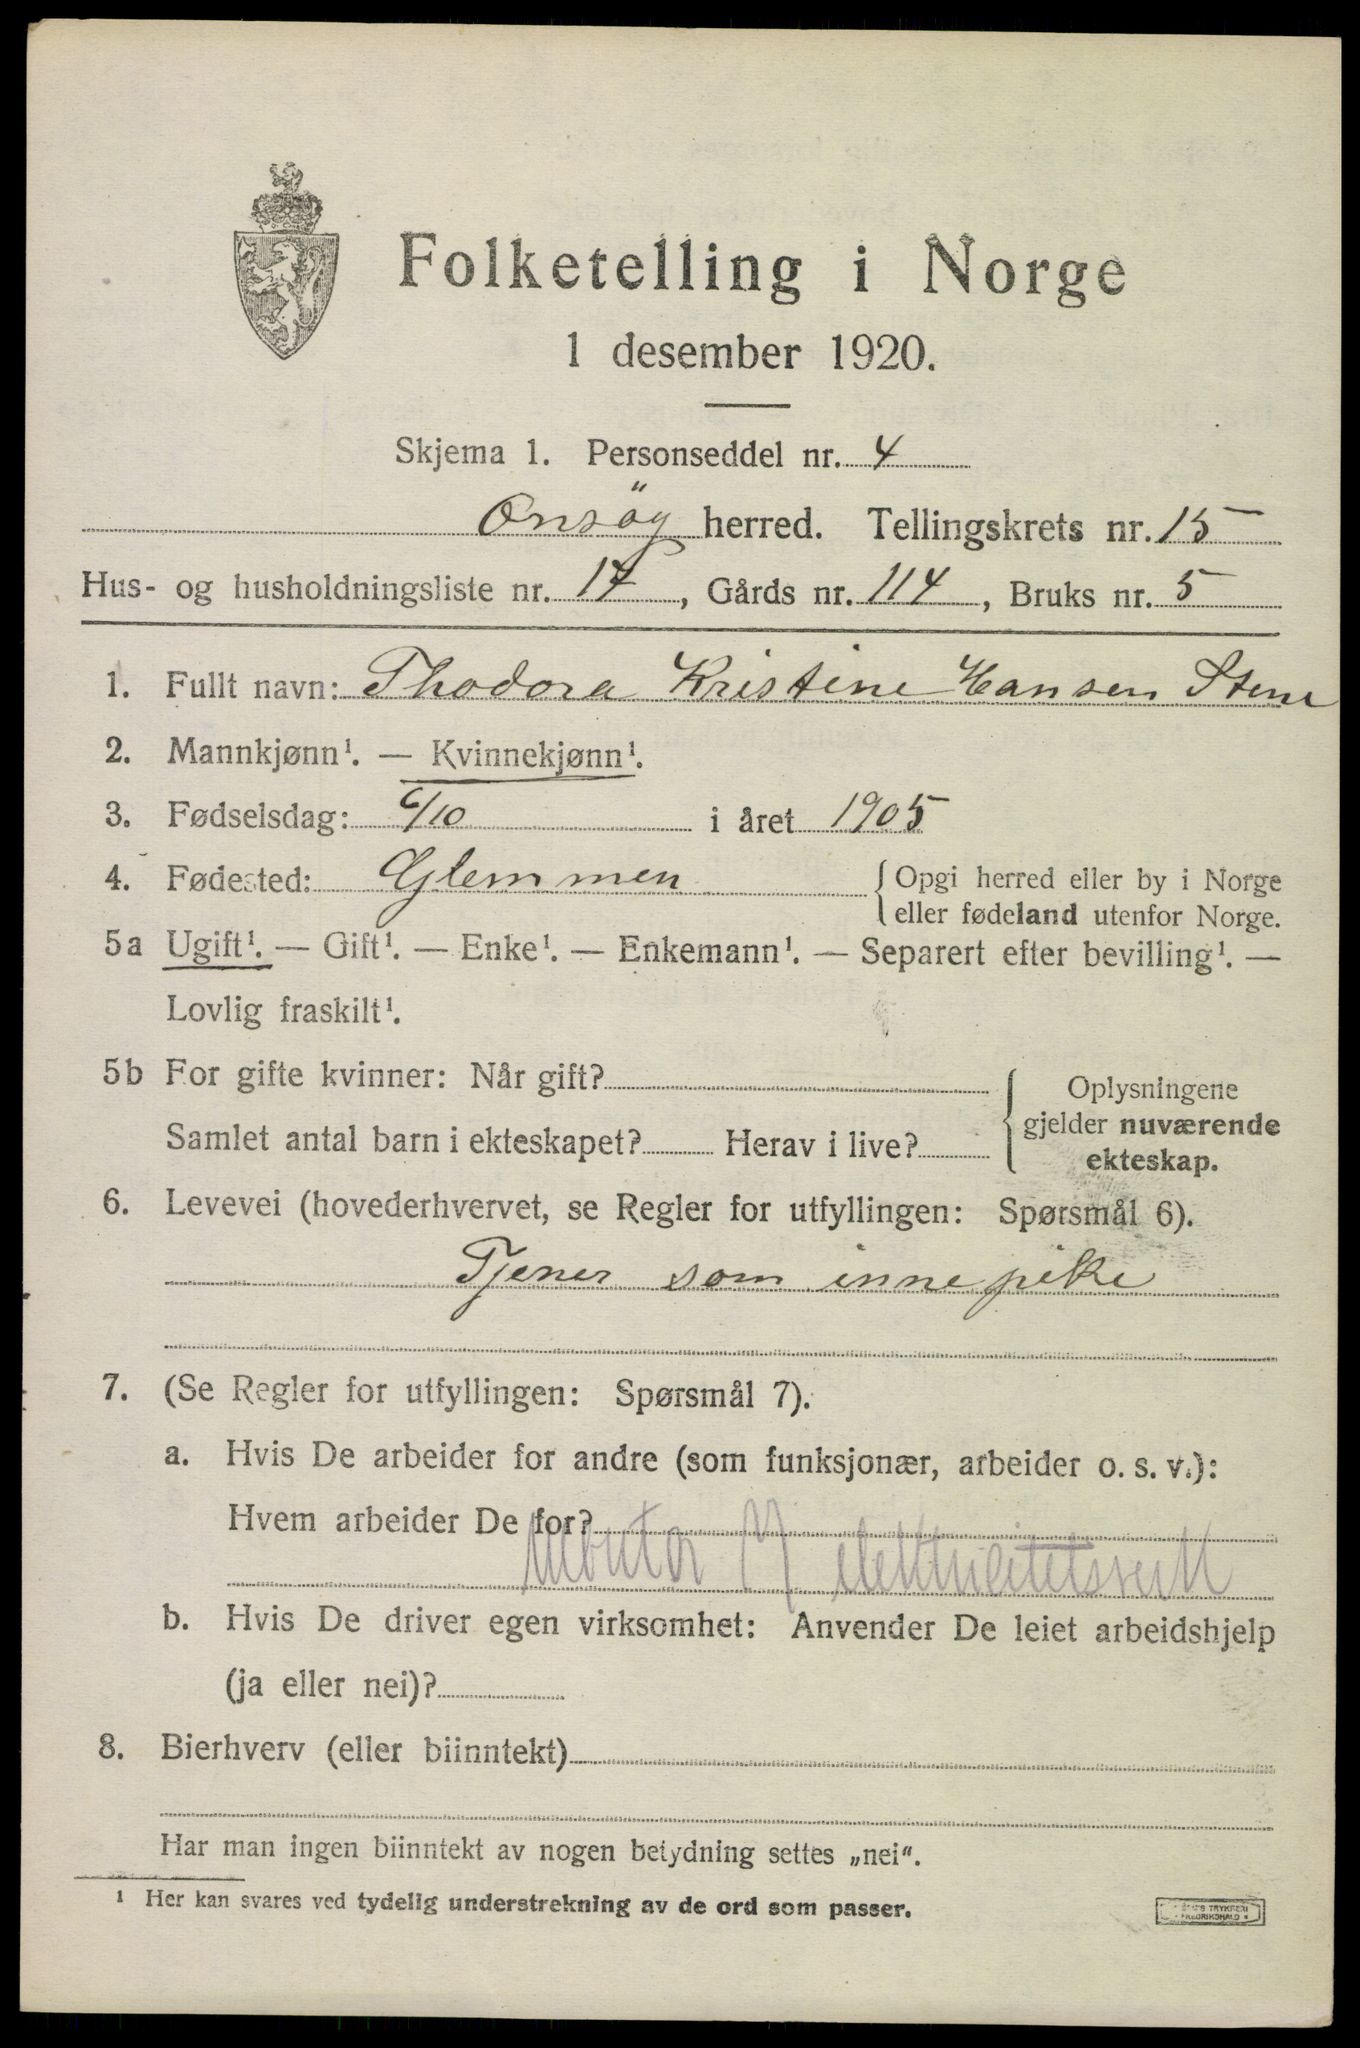 Folketelling i Norge
1 desember 1920.
Skjema 1. Personseddel nr. 4
Onsöy herred. Tellingskrets nr. 15
Hus- og husholdningsliste nr. 17, Gårds nr. 114, Bruks nr. 5
1. Fullt navn: Thodora Kristine Hansen Stene
2. Mannkjønn¹. — Kvinnekjønn¹.
3. Fødselsdag: 6/10 i året 1905
4. Fødested: Glemmen { Opgi herred eller by i Norge
eller fødeland utenfor Norge.
5a Ugift¹. — Gift¹. — Enke¹. — Enkemann¹. — Separert efter bevilling¹. —
Lovlig fraskilt¹.
5b For gifte kvinner: Når gift?
Samlet antal barn i ekteskapet? Herav i live?
Oplysningene
gjelder nuværende
ekteskap.
6. Levevei (hovederhvervet, se Regler for utfyllingen: Spørsmål 6).
Tjener som innepike
7. (Se Regler for utfyllingen: Spørsmål 7).
a. Hvis De arbeider for andre (som funksjonær, arbeider o. s. v.):
Hvem arbeider De for?
Montør elektricitetsverk
b. Hvis De driver egen virksomhet: Anvender De leiet arbeidshjelp
(ja eller nei)?
8. Bierhverv (eller biinntekt)
Har man ingen biinntekt av nogen betydning settes „nei".
¹ Her kan svares ved tydelig understrekning av de ord som passer.
TRYKKERI
FREDRIKSHALD